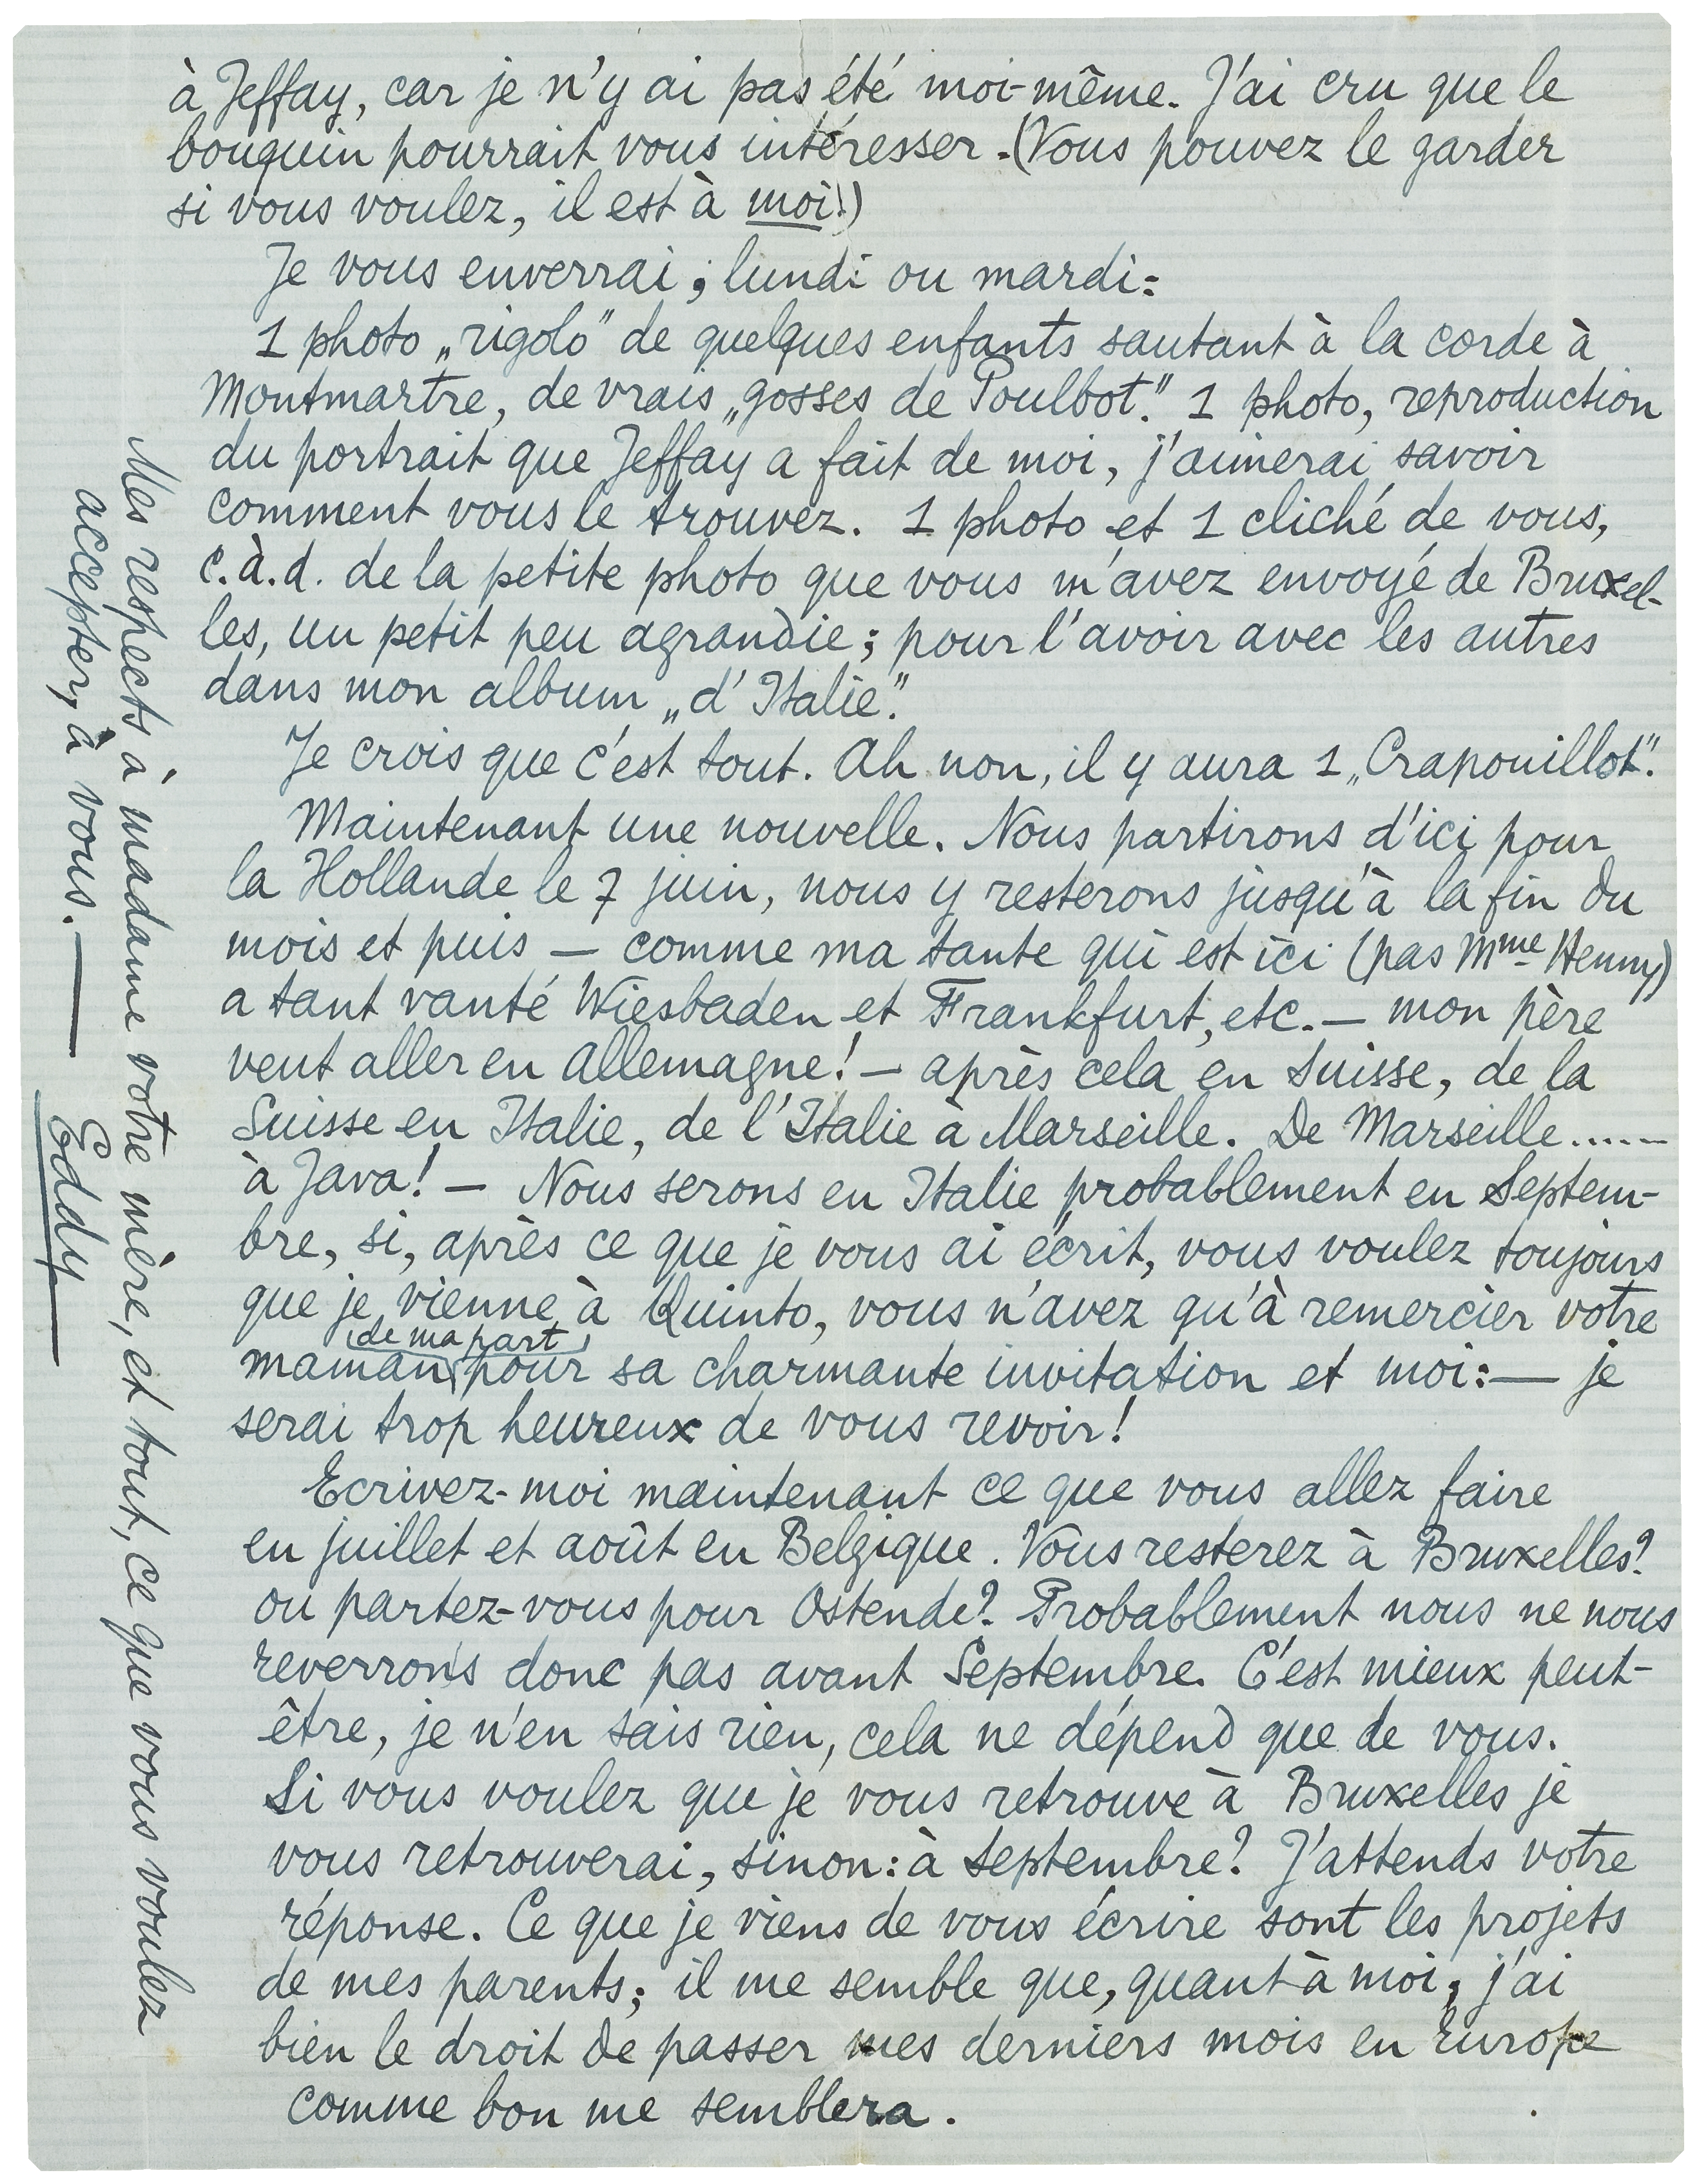 à Jeffay, car je n'y ai pas été moi-même. J'ai cru que le
bouquin pourrait vous intéresser. (Vous pouvez le garder
si vous voulez, il est à moi!)
Je vous enverrai, lundi ou mardi:
1 photo „rigolo" de quelques enfants sautant à la corde à
Montmartre, de vrais „gosses de Poulbot." 1 photo, reproduction
du portrait que Jeffay a fait de moi, j'aimerai savoir
comment vous le trouvez. 1 photo et 1 cliché de vous,
c.à.d. de la petite photo que vous m'avez envoyé de Bruxel-
les, un petit peu agrandie; pour l'avoir avec les autres
dans mon album „d'Italie".
Je crois que c'est tout. Ah non, il y aura 1 „Crapouillot".
Maintenant une nouvelle. Nous partirons d'ici pour
la Hollande le 7 juin, nous y resterons jusqu'à la fin du
mois et puis — comme ma tante qui est ici (pas Mme Henny)
a tant vanté Wiesbaden et Frankfurt, etc. — mon père
veut aller en Allemagne! — après cela en Suisse, de la
Suisse en Italie, de l'Italie à Marseille. De Marseille......
à Java! — Nous serons en Italie probablement en Septem-
bre, si, après ce que je vous ai écrit, vous voulez toujours
que je vienne à Quinto, vous n'avez qu'à remercier votre
maman (de ma part) pour sa charmante invitation et moi: — je
serai trop heureux de vous revoir!
Ecrivez-moi maintenant ce que vous allez faire
en juillet et août en Belgique. Vous resterez à Bruxelles?
ou partez-vous pour Ostende? Probablement nous ne nous
reverrons donc pas avant Septembre. C'est mieux peut-
être, je n'en sais rien, cela ne dépend que de vous.
Si vous voulez que je vous retrouve à Bruxelles je
vous retrouverai, sinon: à septembre? J'attends votre
réponse. Ce que je viens de vous écrire sont les projets
de mes parents; il me semble que, quant à moi, j'ai
bien le droit de passer mes derniers mois en Europe
comme bon me semblera.
Mes respects à madame votre mère, et tout, ce que vous voulez
accepter, à vous. —
Eddy